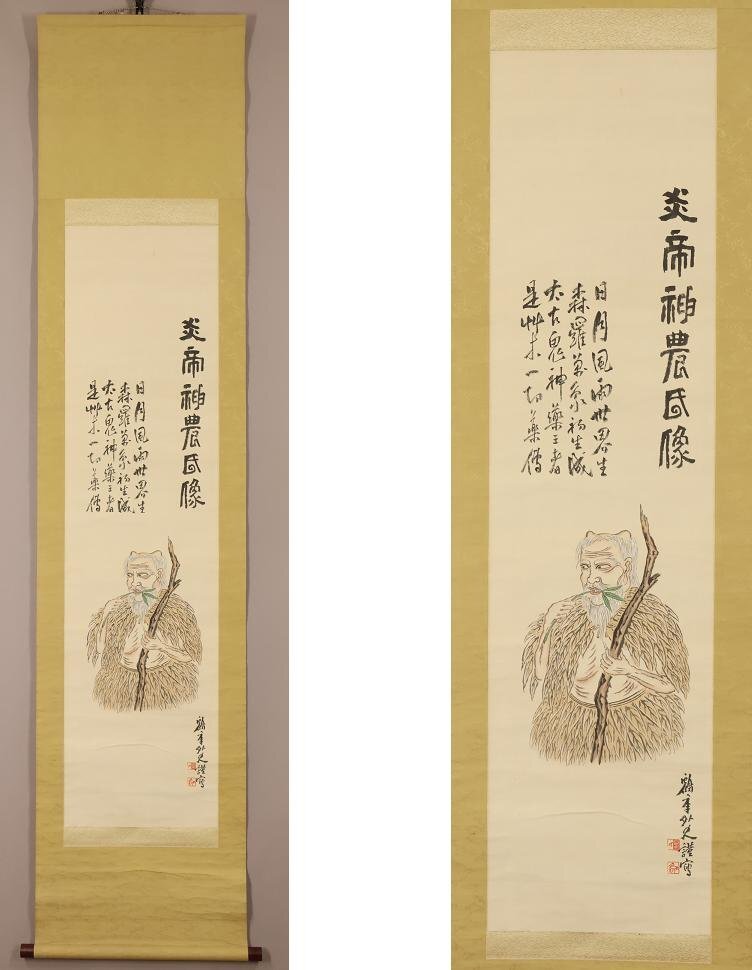 炎帝神農氏像
日月風雨世界生
森羅萬象生
太古鬼神藥王者
是艸木一切藥
外史謹寫
炎帝神農氏像
日月風雨世界生
森羅萬象生
太古鬼神藥王者
是艸木一切藥
外史謹寫